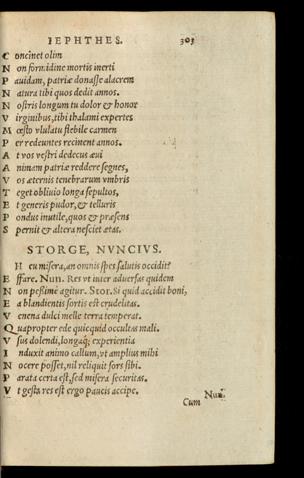 IEPHTHES. 303
C oncinet olim
N on formidine mortis inerti
P auidam, patriæ donasse alacrem
N atura tibi quos dedit annos.
N ostris longum tu dolor & honor
V irginibus, tibi thalami expertes
M œsto vlulatu flebile carmen
P er redeuntes recinent annos.
A t vos vestri dedecus æui
A nimam patriæ reddere segnes,
V os æternis tenebrarum vmbris
T eget obliuio longa sepultos,
E t generis pudor, & telluris
P ondus inutile, quos & præsens
S pernit & altera nesciet ætas.
STORGE, NVNCIVS.
H eu misera, an omnis spes salutis occidit?
E ffare. Nun. Res vt inter aduersas quidem
N on pessimè agitur. Stor. Si quid accidit boni,
E a blandientis sortis est crudelitas.
V enena dulci melle terra temperat.
Q uapropter ede quicquid occultas mali.
V sus dolendi, longaq; experientia
I nduxit animo callum, vt amplius mihi
N ocere posset, nil reliquit fors sibi.
P arata certa est, sed misera securitas.
V t gesta res est ergo paucis accipe.
Nun.
Cum